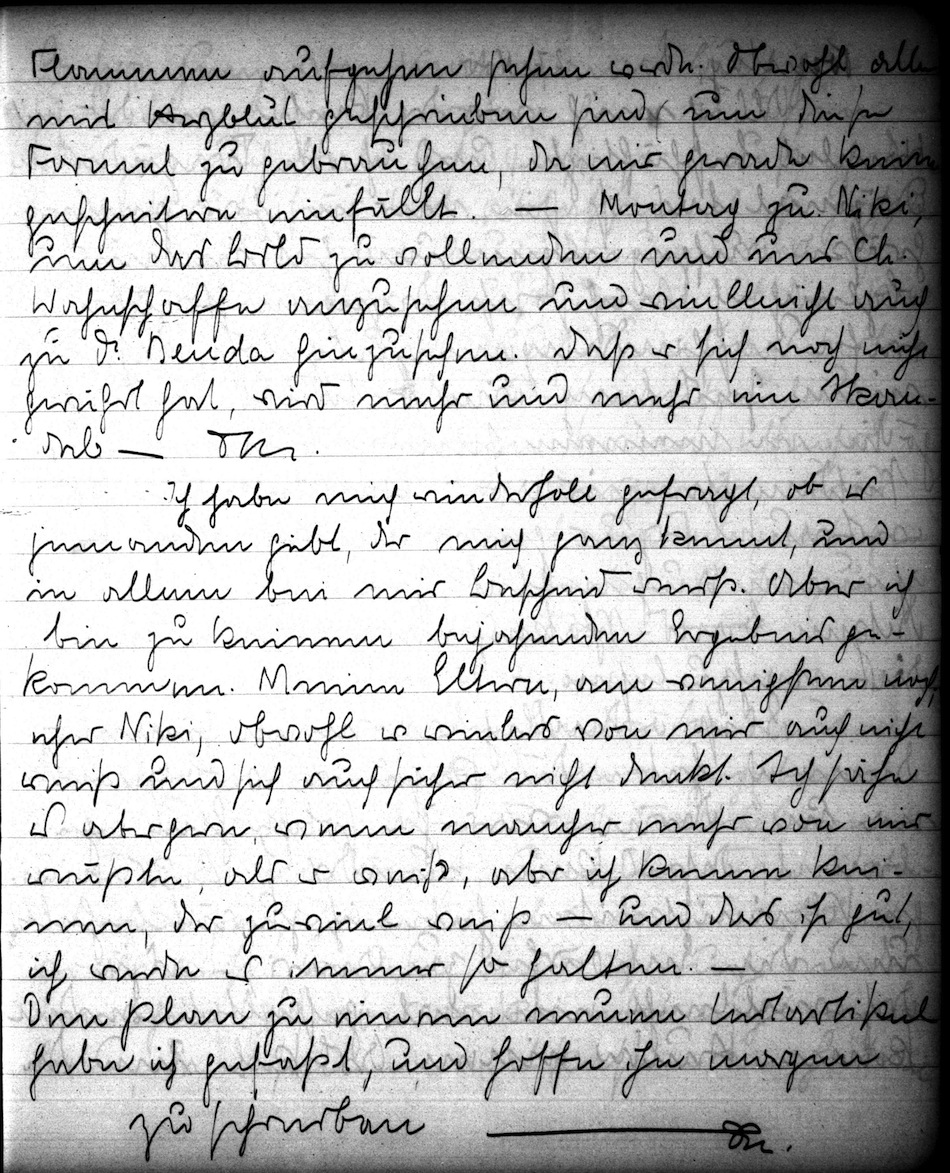 Flammen aufgehen sehen werde. Obwohl alle
mit Herzblut geschrieben sind, um diese
Formel zu gebrauchen, da mir gerade keine
gescheitere einfällt. — Montag zu Niki,
um das Bild zu vollenden und uns Ch.
Wahnschaffe anzusehen und vielleicht auch
zu Dr. Benda hinzusehen. Daß er sich noch nicht
gerührt hat, wird mehr und mehr ein Skan-
dal —
Ich habe mich wiederholt gefragt, ob es
jemanden gibt, der mich ganz kennt, und
in allem bei mir Bescheid weiß. Aber ich
bin zu keinem bejahenden Ergebnis ge-
kommen. Meine Eltern, am wenigsten noch,
eher Niki, obwohl er vieles von mir auch nicht
weiß und sich auch sicher nicht denkt. Ich sähe
es aber gern, wenn mancher mehr von mir
wüßte, als er weiß, aber ich kenne kei-
nen, der zuviel weiß — und das ist gut,
ich werde es immer so halten. —
Den Plan zu einem neuen Leitartikel
habe ich gefaßt, und hoffe ihn morgen
zu schreiben —